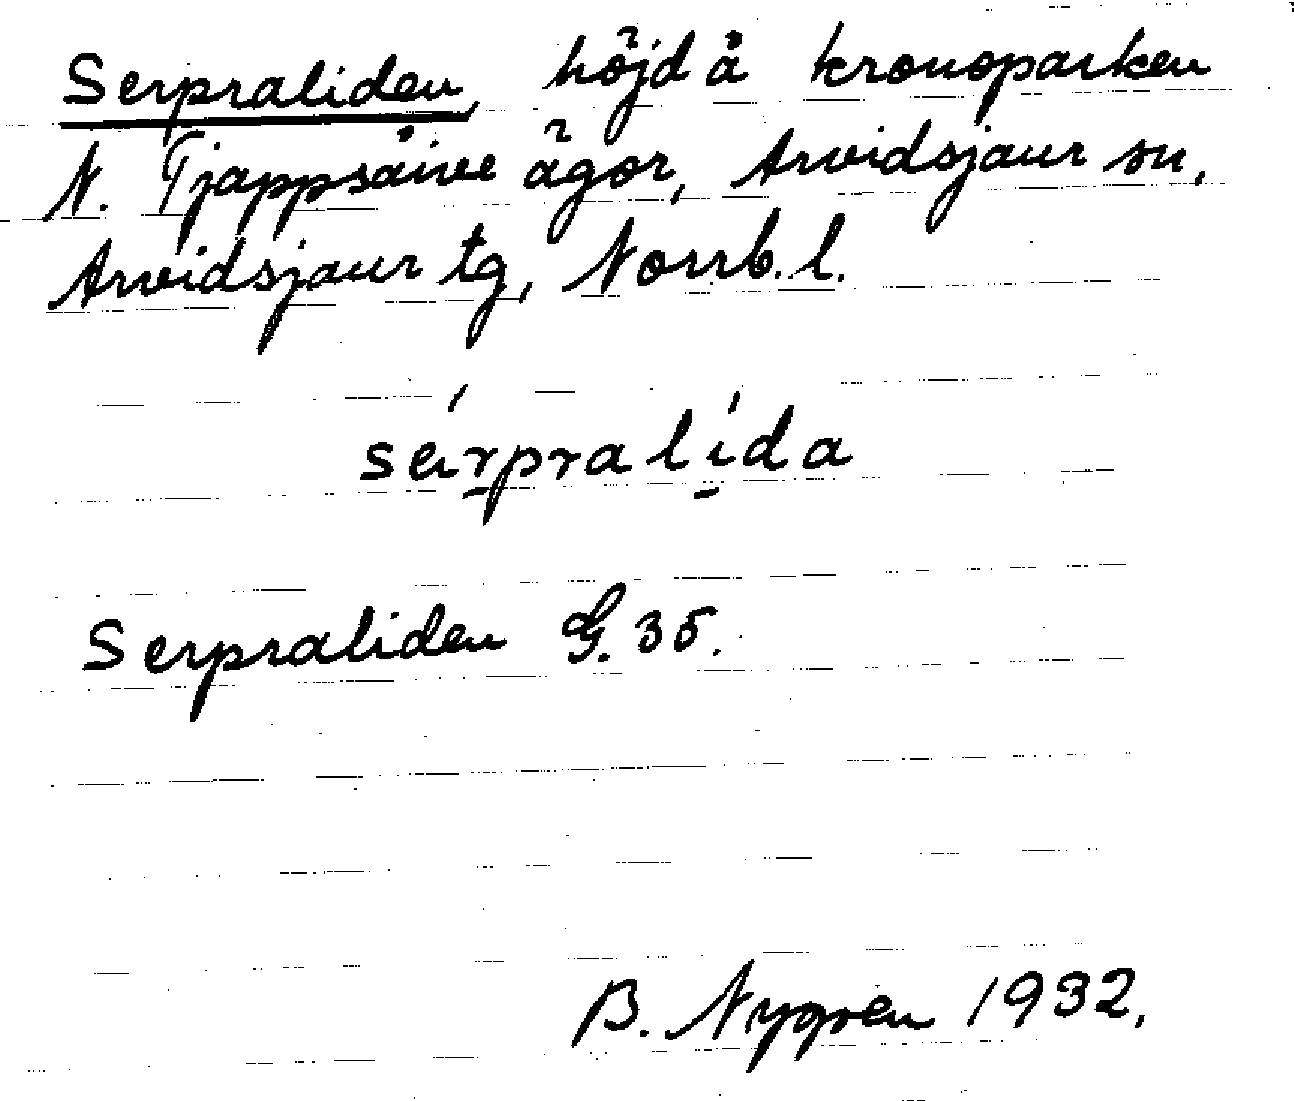 Serpraliden, höjd å kronoparken
N. Tjappsåive ägor, Arvidsjaur sn,
Arvidsjaur tg, Norrb. l.
särpralída
Serpraliden G. 35.
B. Nygren 1932.